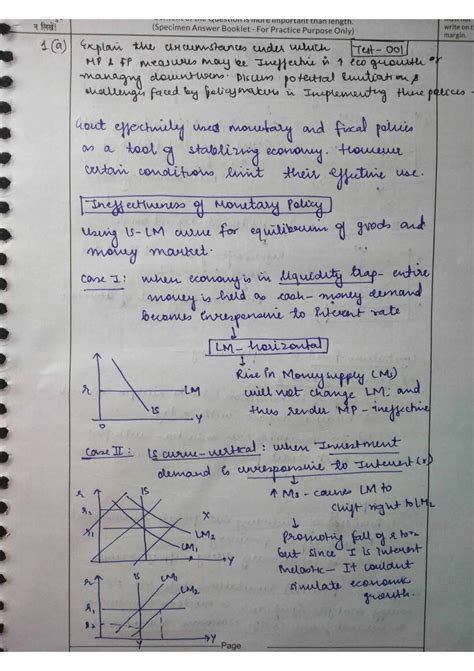 content of the Question is more important than length.
(Specimen Answer Booklet - For Practice Purpose Only)
न लिखें)
write on t
margin.
1 (a) Explain the circumstances under which
Test - 001
MP & FP measures may be Ineffective in ↑ eco growth or
managing downturns. Discuss potential limitations &
challenges faced by policymakers in Implementing these policies -
Govt effectively uses monetary and fiscal policies
as a tool of stabilizing economy. However
certain conditions limit their effective use.
Ineffectiveness of Monetary Policy
Using IS-LM curve for equilibrium of goods and
money market.
Case I: when economy is in liquidity trap - entire
money is held as cash - money demand
becomes irresponsive to Interest rate
↓
LM - horizontal
↓
Rise in Money supply (Ms)
will not change LM; and
thus render MP - ineffective
r
LM
IS
Y
O
Case II: IS curve - vertical: when Investment
demand is unresponsive to Interest (r)
↓
↑ Ms - causes LM to
shift right to LM2
↓
Promoting fall of r to r2
but since I is Interest
Inelastic - It couldn't
simulate economic
growth.
r
IS
r1
X
LM2
LM1
Y
r
IS
LM1
LM2
r1
r2
Y
Y
Page